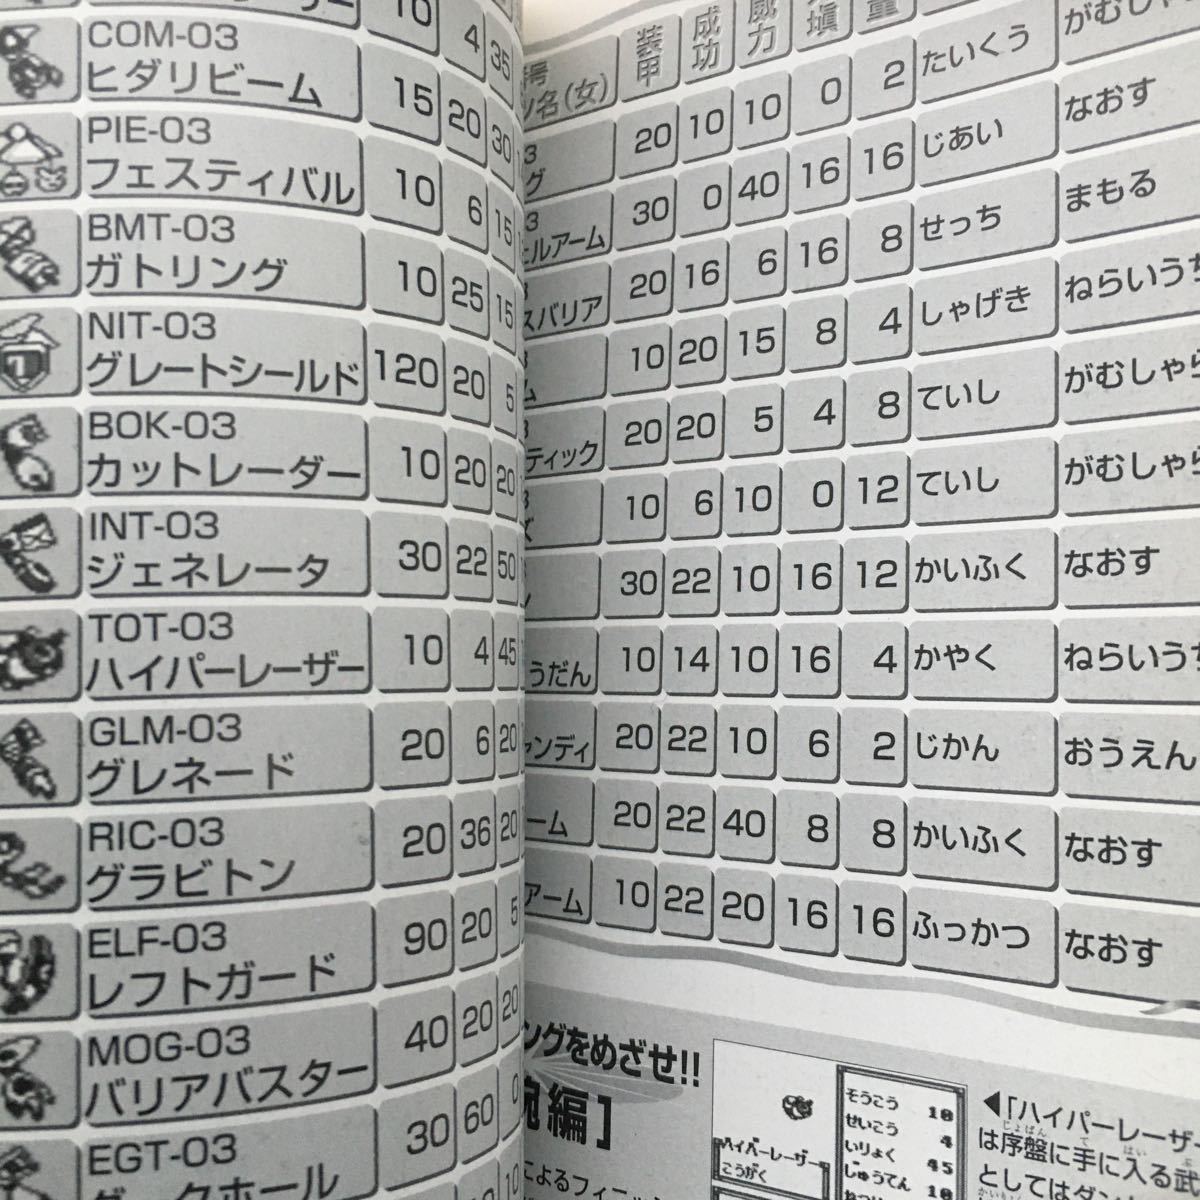 10 4 35
COM-03
ヒダリビーム 15 20 30
PIE-03
フェスティバル 10 6 15
BMT-03
ガトリング 10 25 15
NIT-03
グレートシールド 120 20 5
BOK-03
カットレーダー 10 20 20
INT-03
ジェネレータ 30 22 50
TOT-03
ハイパーレーザー 10 4 45
GLM-03
グレネード 20 6 20
RIC-03
グラビトン 20 36 20
ELF-03
レフトガード 90 20 5
MOG-03
バリアバスター 40 20 20
EGT-03
30 60 0
号
ツ名(女) 装甲 成功 威力 填 量
20 10 10 0 2 たいくう がむしゃ
グ 30 0 40 16 16 じあい なおす
ルアーム 20 16 6 16 8 せっち まもる
スバリア 10 20 15 8 4 しゃげき ねらいうち
ム 20 20 5 4 8 ていし がむしゃら
ティック 10 6 10 0 12 ていし がむしゃら
30 22 10 16 12 かいふく なおす
うだん 10 14 10 16 4 かやく ねらいうち
ャンディ 20 22 10 6 2 じかん おうえん
ーム 20 22 40 8 8 かいふく なおす
アーム 10 22 20 16 16 ふっかつ なおす
ングをめざせ!!
腕編]
によるフィニッシ
ハイパーレーザー
こうがく
そうこう 10
せいこう 4
いりょく 45
じゅうてん 10
◀「ハイパーレーザ
は序盤に手に入る武
としてはダ